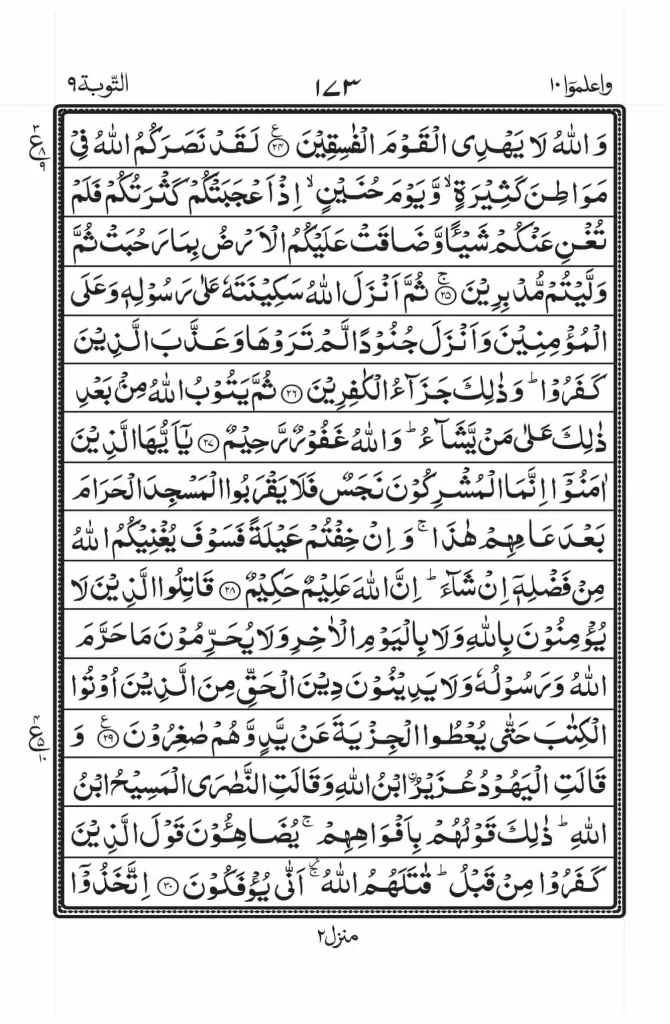 واعلموا ۱۰ ۱۷۳ التّوبة ۹
وَ اللّٰهُ لَا يَهْدِى الْقَوْمَ الْفٰسِقِيْنَ ۝۲۴ۧ لَقَدْ نَصَرَكُمُ اللّٰهُ فِىْ
مَوَاطِنَ كَثِيْرَةٍۙ وَّ يَوْمَ حُنَيْنٍۙ اِذْ اَعْجَبَتْكُمْ كَثْرَتُكُمْ فَلَمْ
تُغْنِ عَنْكُمْ شَيْـًٔا وَّ ضَاقَتْ عَلَيْكُمُ الْاَرْضُ بِمَا رَحُبَتْ ثُمَّ
وَلَّيْتُمْ مُّدْبِرِيْنَ ۝۲۵ۚ ثُمَّ اَنْزَلَ اللّٰهُ سَكِيْنَتَهٗ عَلٰى رَسُوْلِهٖ وَعَلَى
الْمُؤْمِنِيْنَ وَاَنْزَلَ جُنُوْدًا لَّمْ تَرَوْهَا وَعَذَّبَ الَّذِيْنَ
كَفَرُوْاؕ وَذٰلِكَ جَزَآءُ الْكٰفِرِيْنَ ۝۲۶ ثُمَّ يَتُوْبُ اللّٰهُ مِنْۢ بَعْدِ
ذٰلِكَ عَلٰى مَنْ يَّشَآءُؕ وَاللّٰهُ غَفُوْرٌ رَّحِيْمٌ ۝۲۷ يٰۤاَيُّهَا الَّذِيْنَ
اٰمَنُوْۤا اِنَّمَا الْمُشْرِكُوْنَ نَجَسٌ فَلَا يَقْرَبُوا الْمَسْجِدَ الْحَرَامَ
بَعْدَ عَامِهِمْ هٰذَاۚ وَاِنْ خِفْتُمْ عَيْلَةً فَسَوْفَ يُغْنِيْكُمُ اللّٰهُ
مِنْ فَضْلِهٖۤ اِنْ شَآءَؕ اِنَّ اللّٰهَ عَلِيْمٌ حَكِيْمٌ ۝۲۸ قَاتِلُوا الَّذِيْنَ لَا
يُؤْمِنُوْنَ بِاللّٰهِ وَلَا بِالْيَوْمِ الْاٰخِرِ وَلَا يُحَرِّمُوْنَ مَا حَرَّمَ
اللّٰهُ وَرَسُوْلُهٗ وَلَا يَدِيْنُوْنَ دِيْنَ الْحَقِّ مِنَ الَّذِيْنَ اُوْتُوا
الْكِتٰبَ حَتّٰى يُعْطُوا الْجِزْيَةَ عَنْ يَّدٍ وَّهُمْ صٰغِرُوْنَ ۝۲۹ۧ وَ
قَالَتِ الْيَهُوْدُ عُزَيْرُ ِ۟ابْنُ اللّٰهِ وَقَالَتِ النَّصٰرَى الْمَسِيْحُ ابْنُ
اللّٰهِؕ ذٰلِكَ قَوْلُهُمْ بِاَفْوَاهِهِمْۚ يُضَاهِـُٔوْنَ قَوْلَ الَّذِيْنَ
كَفَرُوْا مِنْ قَبْلُؕ قٰتَلَهُمُ اللّٰهُۚ اَنّٰى يُؤْفَكُوْنَ ۝۳۰ اِتَّخَذُوْۤا
منزل ۲